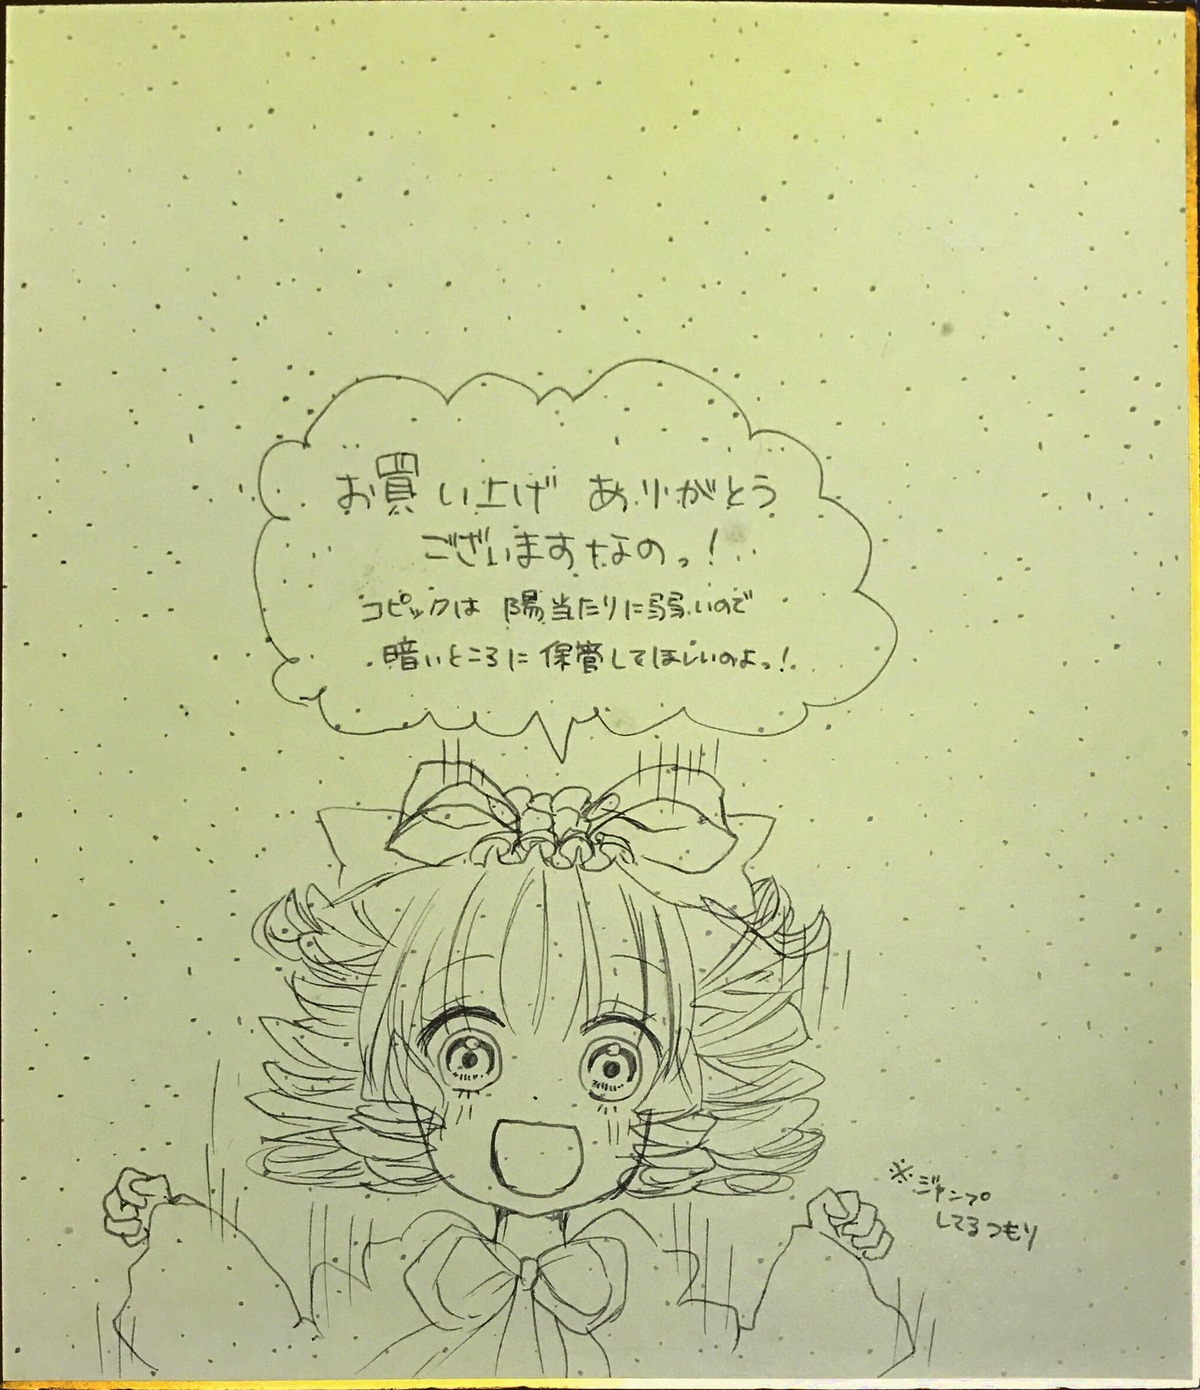 お買い上げ ありがとう
ございますなのっ!
コピックは 陽当たりに弱いので
暗いところに保管してほしいのよっ!
※ジャンプ
してるつもり